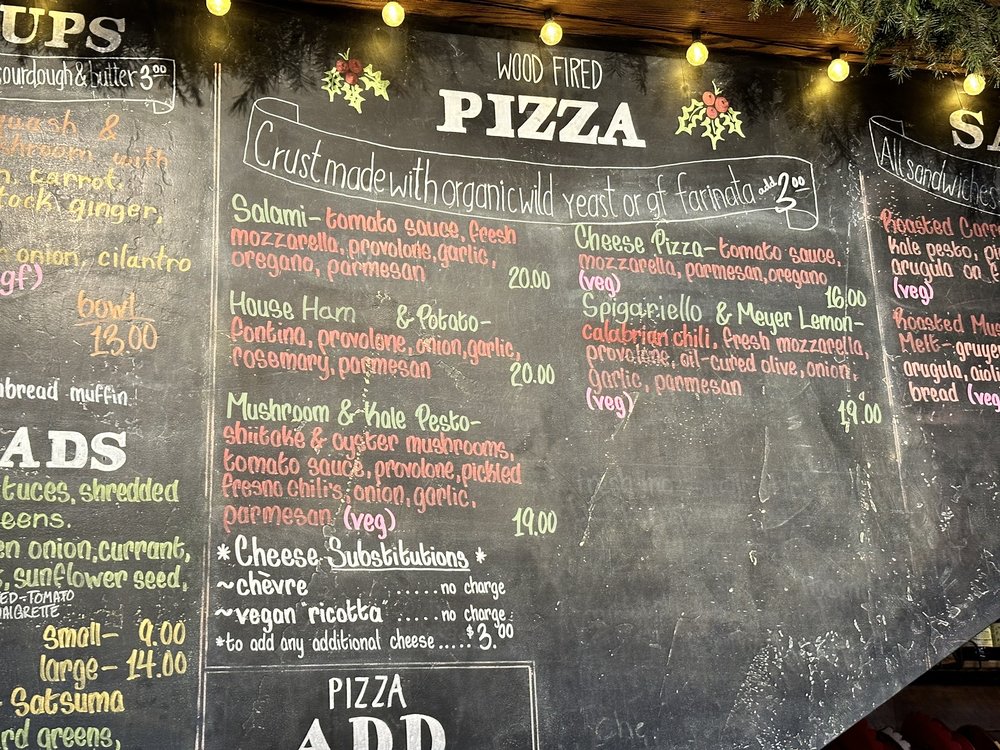 UPS
sourdough & butter 3.00
squash &
with
carrot,
stock ginger,
onion, cilantro
gf)
bowl
13.00
muffin
ADS
tuces, shredded
eens.
onion, currant,
sunflower seed,
ED-TOMATO
small- 9.00
large- 14.00
Satsuma
greens,
WOOD FIRED
PIZZA
Crust made with organic wild yeast or gf farinata add 3.00
Salami- tomato sauce, fresh
mozzarella, provolone, garlic,
oregano, parmesan
20.00
House Ham & Potato-
fontina, provolone, onion, garlic,
rosemary, parmesan
20.00
Mushroom & Kale Pesto-
shiitake & oyster mushrooms,
tomato sauce, provolone, pickled
fresno chili's, onion, garlic,
parmesan (veg)
19.00
*Cheese Substitutions *
~chèvre ......no charge
~vegan "ricotta" .....no charge
*to add any additional cheese.....$3.00
PIZZA
ADD
Cheese Pizza- tomato sauce,
mozzarella, parmesan, oregano
(veg)
16.00
Spigariello & Meyer Lemon-
calabrian chili, fresh mozzarella,
provolone, oil-cured olive, onion,
garlic, parmesan
(veg)
19.00
SA
All sandwiches
Roasted Carr
kale pesto, pi
arugula on
(veg)
Roasted Mus
Melt- gruyer
arugula, aioli
bread (veg